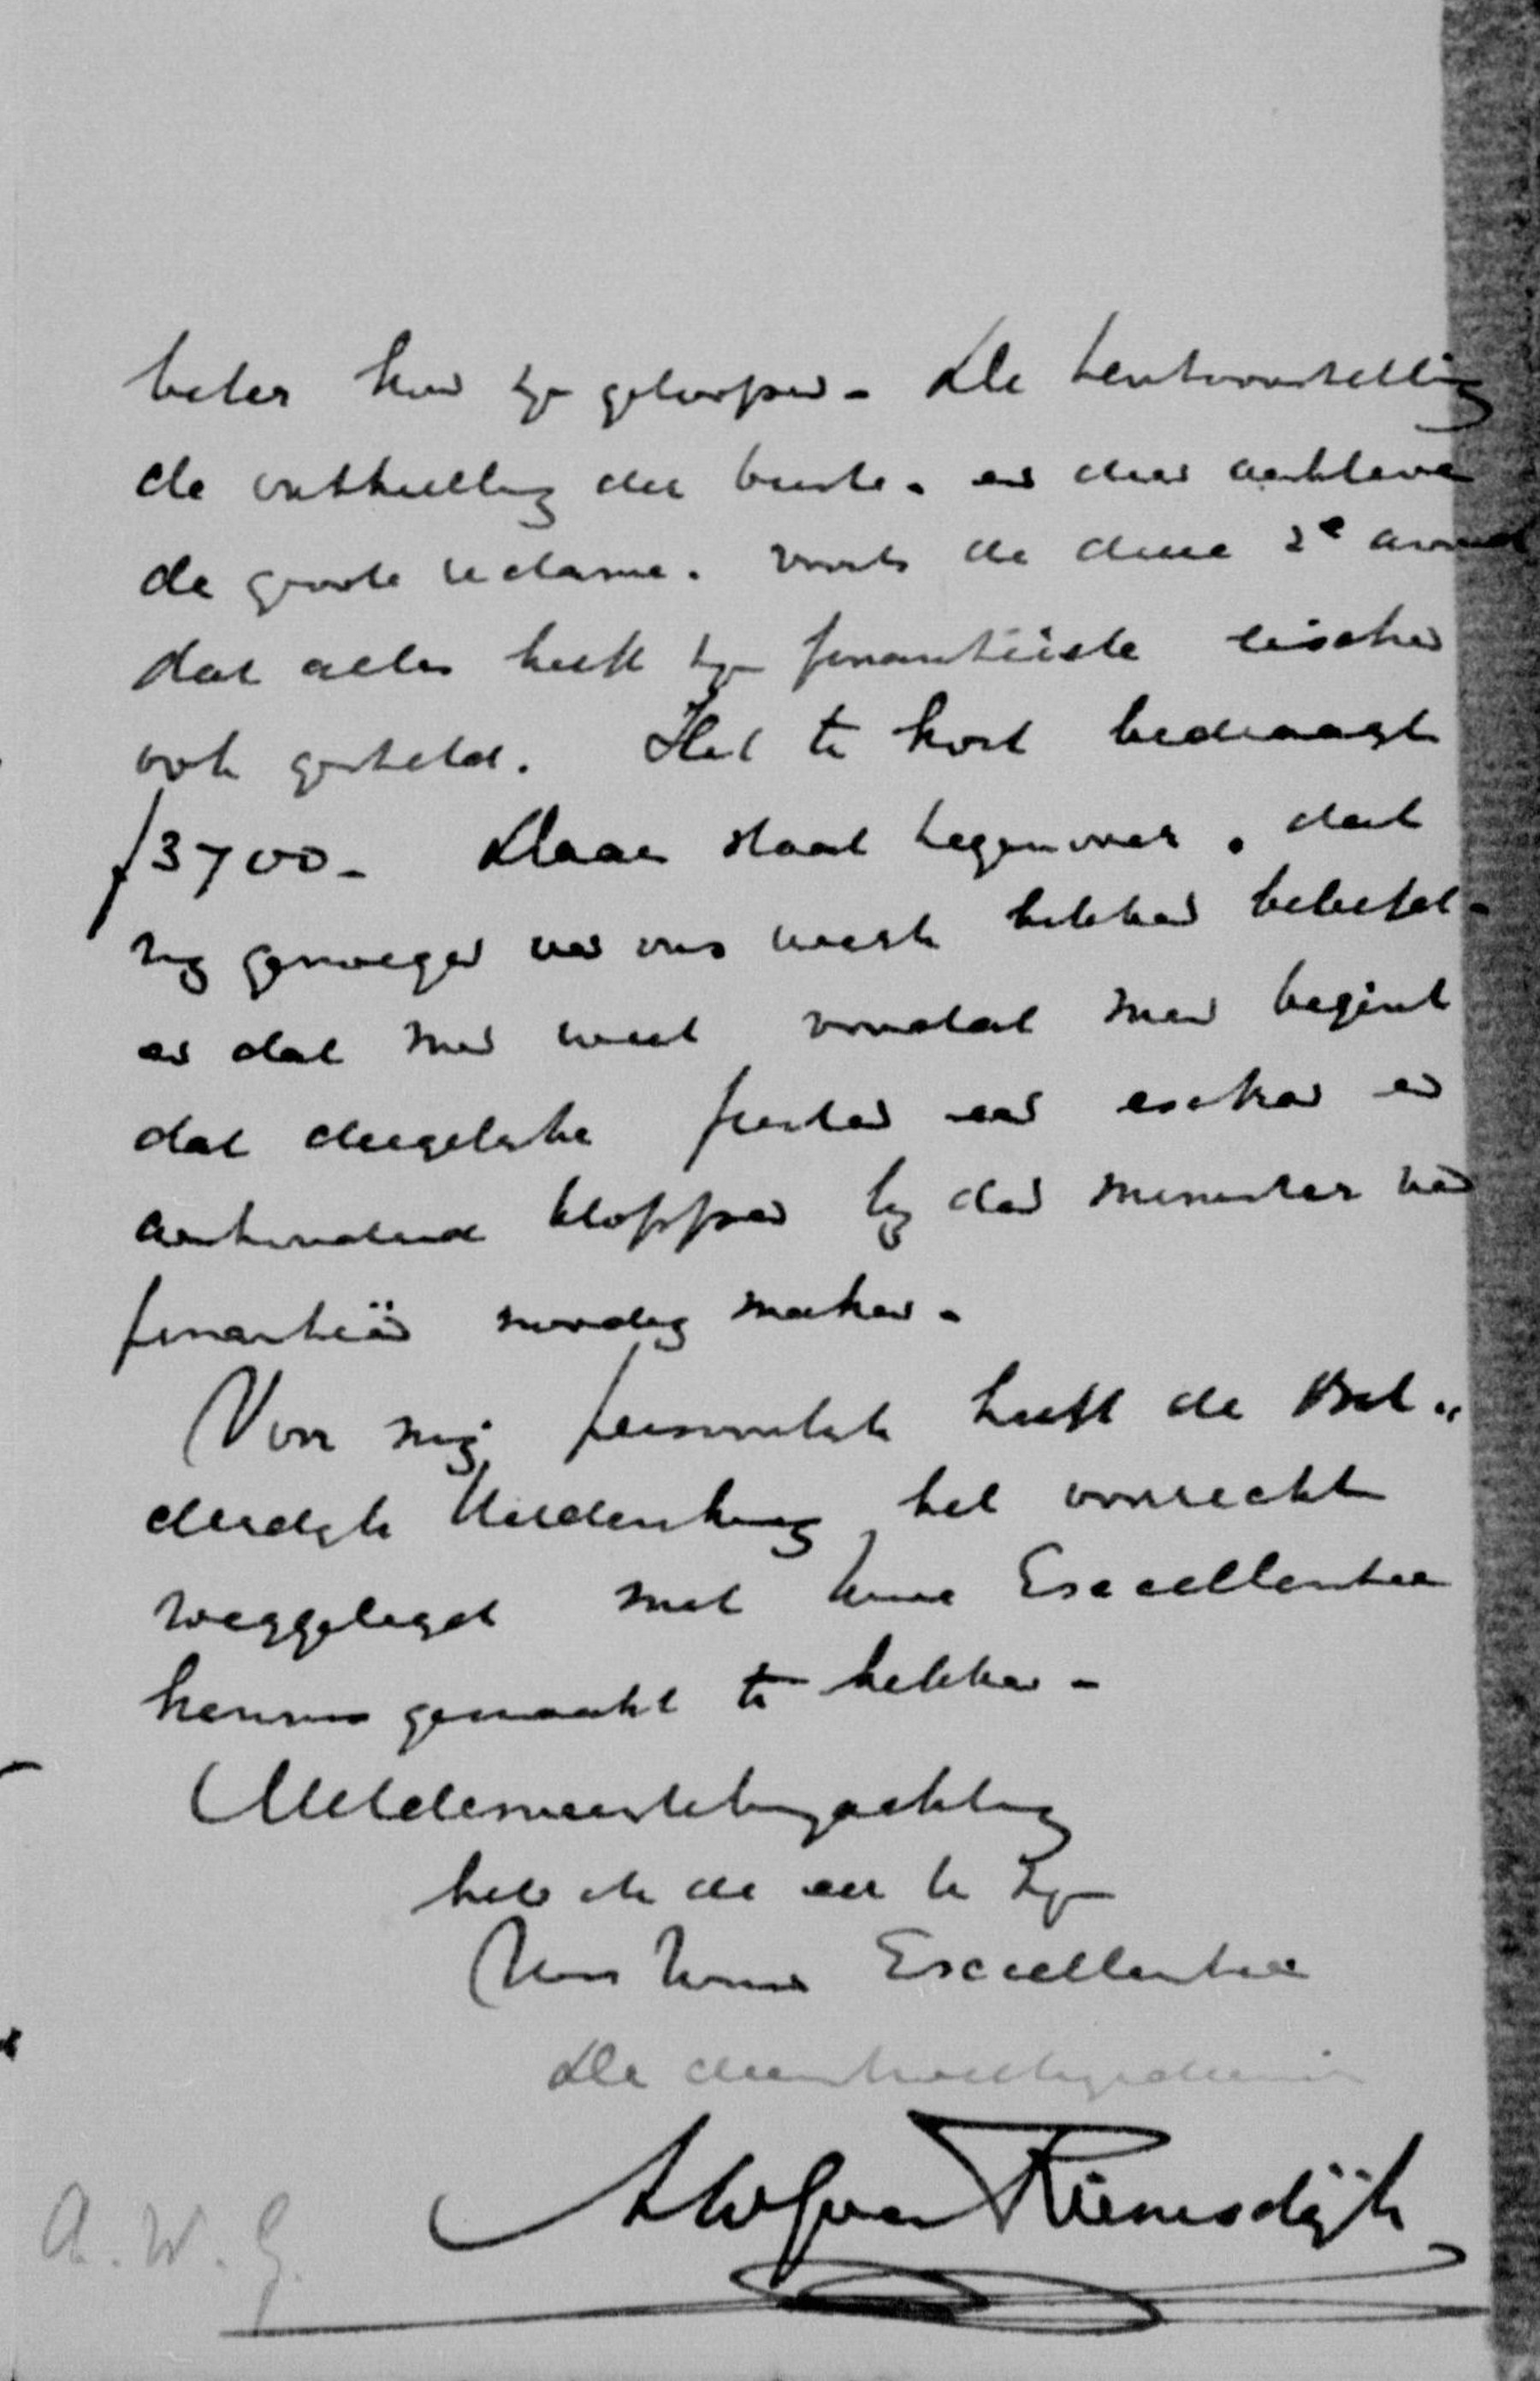 beter kon zijn geloopen. De tentoonstelling
de onthulling der buste. en daar
de groote reclame. voorts de dure 2e avond
dat alles heeft zijn finantiëele eischen
ook gesteld. Het te kort bedraagt
ƒ3700- Daar staat tegenover, dat
wij genoegen van ons werk hebben beleefd-
en dat men weet voordat men begint
dat dergelijke feesten een en
aankloppen bij den minister van
finantiën noodig maken.
Voor mij persoonlijk heeft de Bol-
herdenking het voorrecht
weggelegd met Uwe Excellentie
kennis gemaakt te hebben-
Met de meeste hoogachting
heb ik de eer te zijn
Van Uwe Excellentie
De
AWG van Riemsdijk
A. W. G.